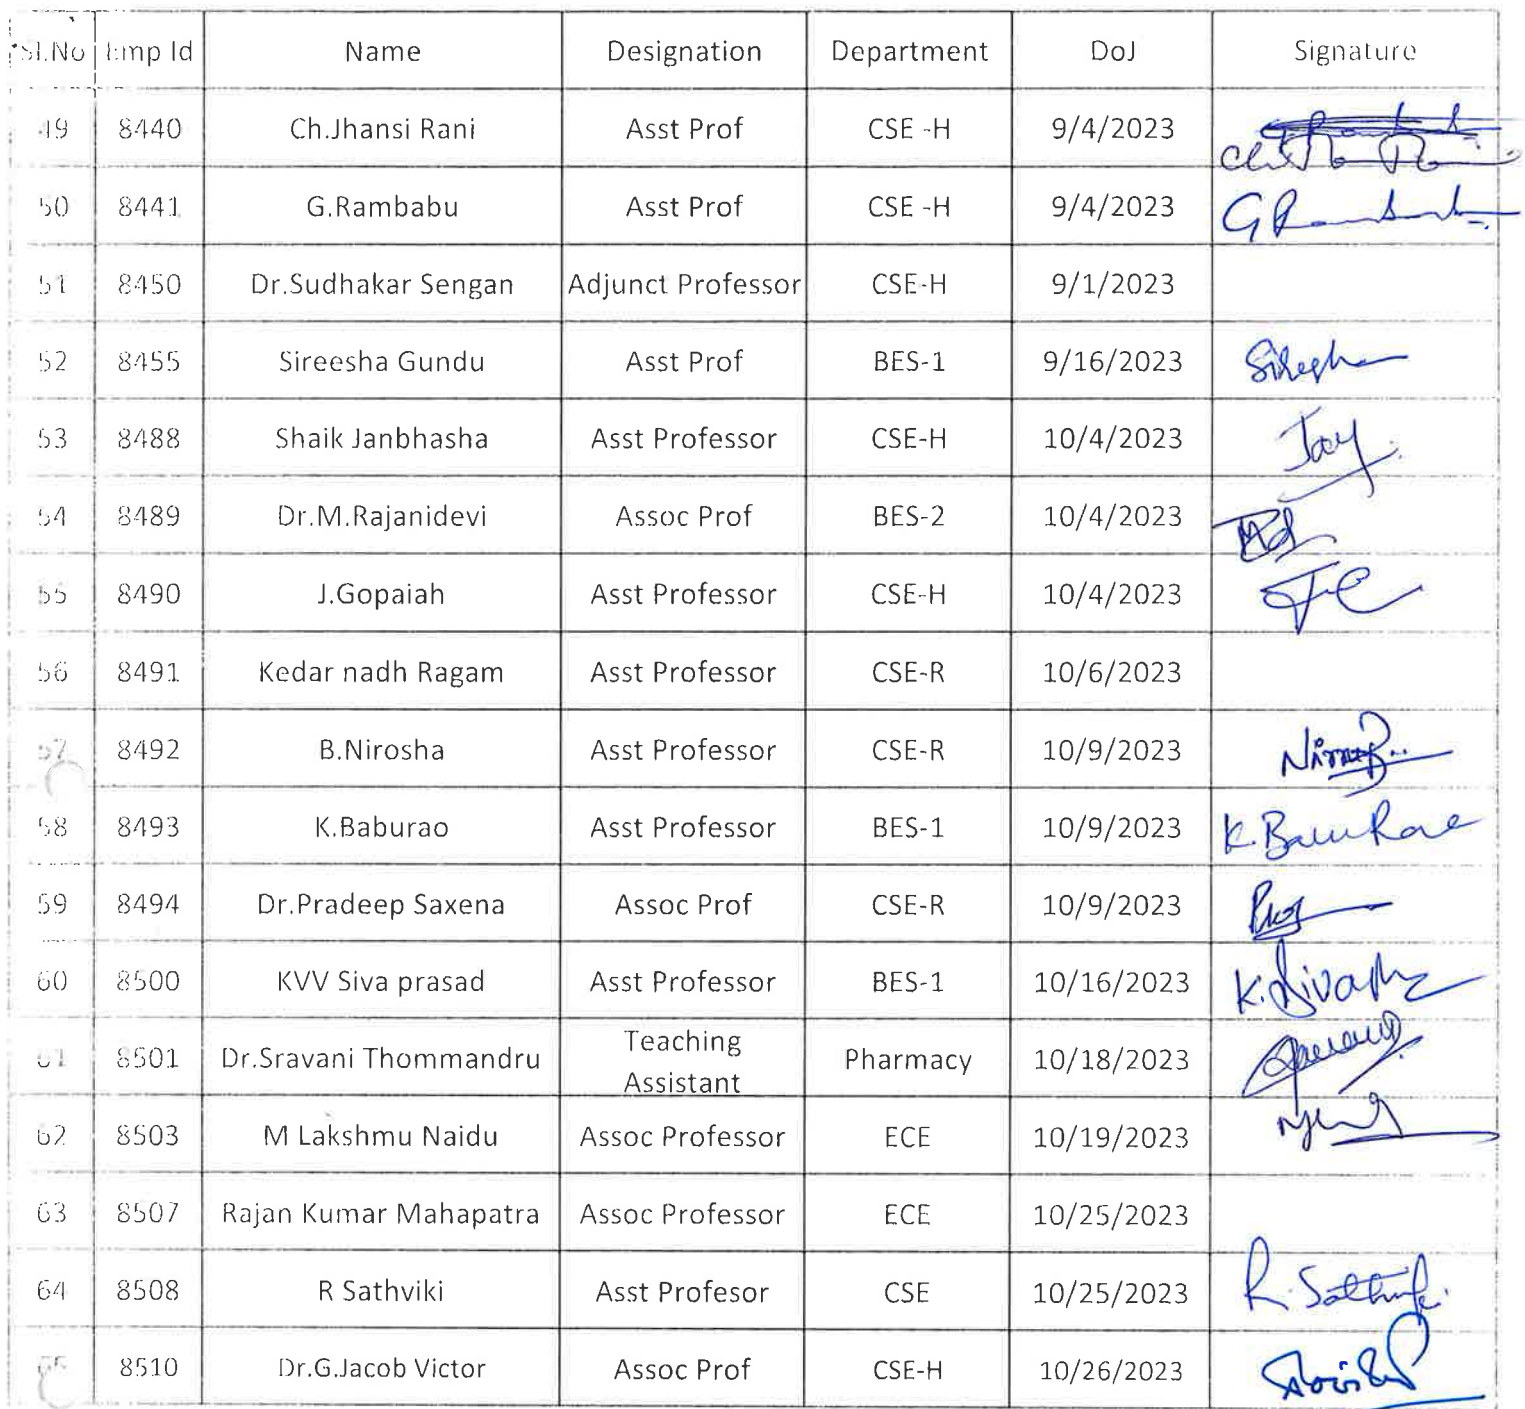 Sl.No Emp Id Name Designation Department DoJ Signature
49 8440 Ch.Jhansi Rani Asst Prof CSE -H 9/4/2023
50 8441 G.Rambabu Asst Prof CSE -H 9/4/2023 G Rambabu
51 8450 Dr.Sudhakar Sengan Adjunct Professor CSE-H 9/1/2023
52 8455 Sireesha Gundu Asst Prof BES-1 9/16/2023
53 8488 Shaik Janbhasha Asst Professor CSE-H 10/4/2023
54 8489 Dr.M.Rajanidevi Assoc Prof BES-2 10/4/2023
55 8490 J.Gopaiah Asst Professor CSE-H 10/4/2023
56 8491 Kedar nadh Ragam Asst Professor CSE-R 10/6/2023
57 8492 B.Nirosha Asst Professor CSE-R 10/9/2023
58 8493 K.Baburao Asst Professor BES-1 10/9/2023 K.BabuRao
59 8494 Dr.Pradeep Saxena Assoc Prof CSE-R 10/9/2023
60 8500 KVV Siva prasad Asst Professor BES-1 10/16/2023
61 8501 Dr.Sravani Thommandru Teaching Assistant Pharmacy 10/18/2023
62 8503 M Lakshmu Naidu Assoc Professor ECE 10/19/2023
63 8507 Rajan Kumar Mahapatra Assoc Professor ECE 10/25/2023
64 8508 R Sathviki Asst Profesor CSE 10/25/2023 R.Sathviki
65 8510 Dr.G.Jacob Victor Assoc Prof CSE-H 10/26/2023